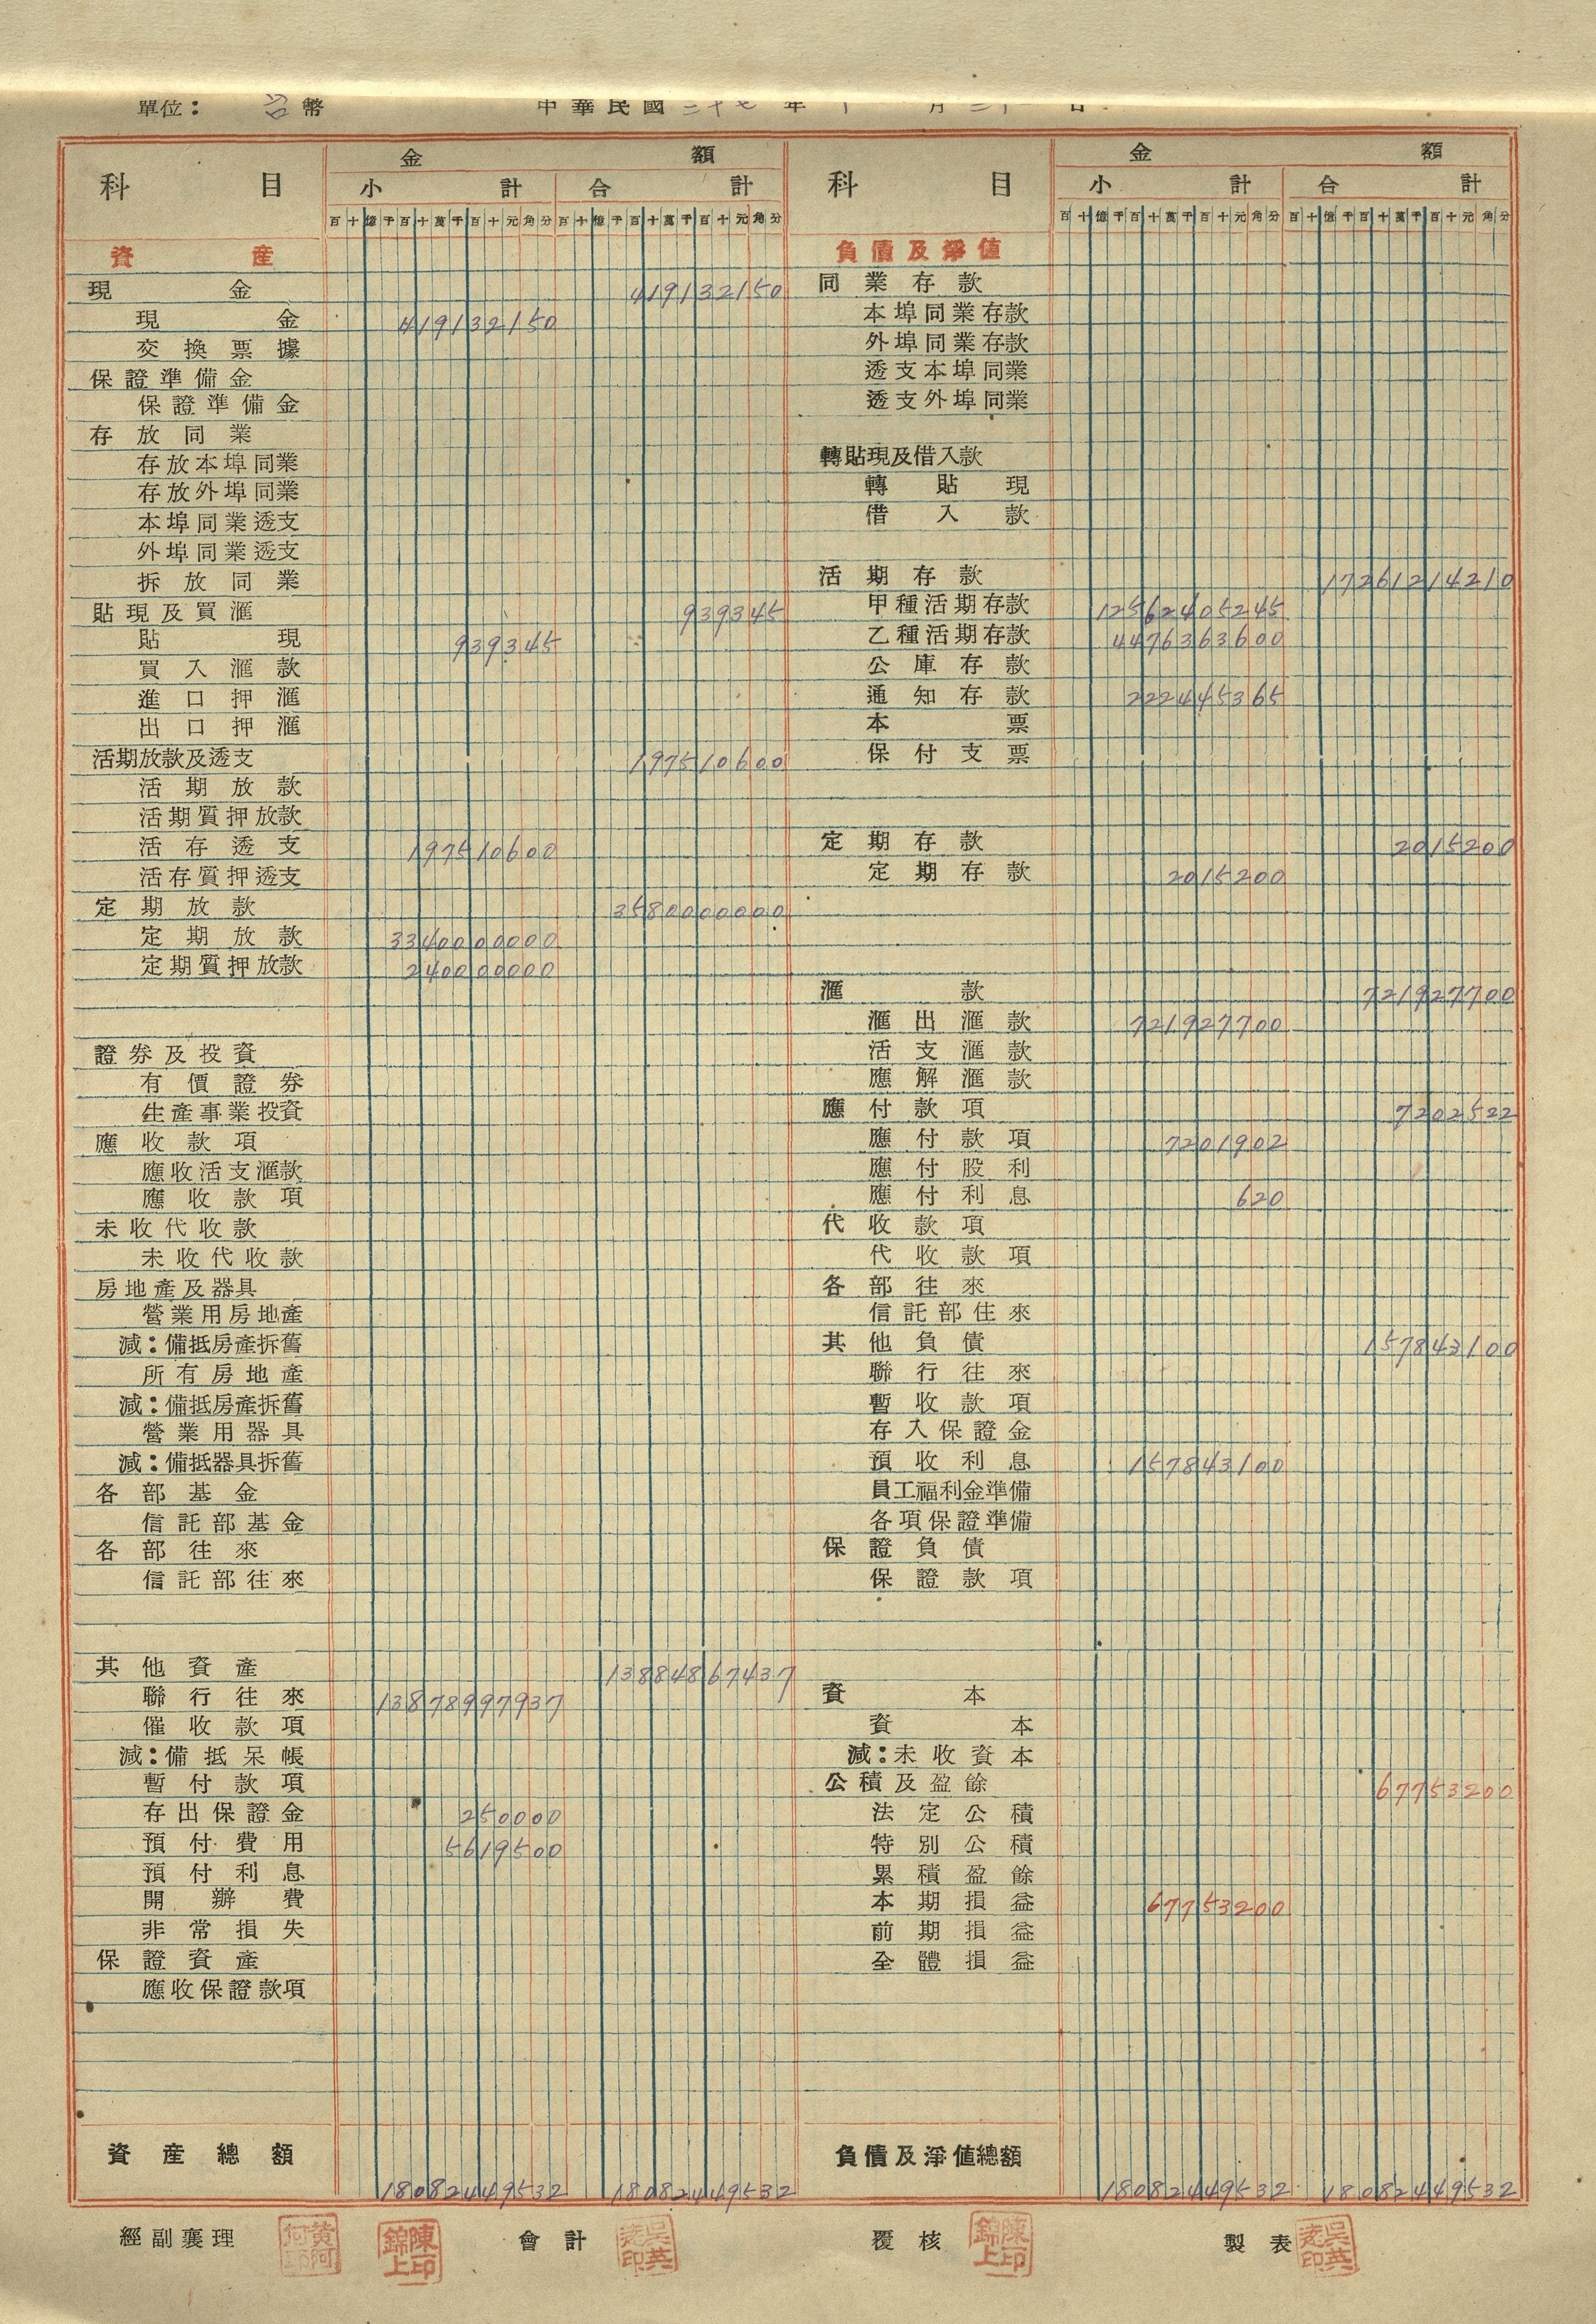 單位：台幣 中華民國三十七年十月三十日
科目 金額
小計 合計
百十億千百十萬千百十元角分 百十億千百十萬千百十元角分
資產
現金 419132150
現金 419132150
交換票據
保證準備金
保證準備金
存放同業
存放本埠同業
存放外埠同業
本埠同業透支
外埠同業透支
拆放同業
貼現及買滙 939345
貼現 939345
買入滙款
進口押滙
出口押滙
活期放款及透支 197510600
活期放款
活期質押放款
活存透支 197510600
活存質押透支
定期放款 3580000000
定期放款 3340000000
定期質押放款 240000000
證券及投資
有價證券
生產事業投資
應收款項
應收活支滙款
應收款項
未收代收款
未收代收款
房地產及器具
營業用房地產
減：備抵房產拆舊
所有房地產
減：備抵房產拆舊
營業用器具
減：備抵器具拆舊
各部基金
信託部基金
各部往來
信託部往來
其他資產 13884867437
聯行往來 13878997937
催收款項
減：備抵呆帳
暫付款項
存出保證金 250000
預付費用 5619500
預付利息
開辦費
非常損失
保證資產
應收保證款項
資產總額 18082449532 18082449532
科目 金額
小計 合計
百十億千百十萬千百十元角分 百十億千百十萬千百十元角分
負債及淨值
同業存款
本埠同業存款
外埠同業存款
透支本埠同業
透支外埠同業
轉貼現及借入款
轉貼現
借入款
活期存款 17261214210
甲種活期存款 12562405245
乙種活期存款 4476363600
公庫存款
通知存款 222445365
本票
保付支票
定期存款 2015200
定期存款 2015200
滙款 721927700
滙出滙款 721927700
活支滙款
應解滙款
應付款項 7202522
應付款項 7201902
應付股利
應付利息 620
代收款項
代收款項
各部往來
信託部往來
其他負債 157843100
聯行往來
暫收款項
存入保證金
預收利息 157843100
員工福利金準備
各項保證準備
保證負債
保證款項
資本
資本
減：未收資本
公積及盈餘 67753200
法定公積
特別公積
累積盈餘
本期損益 67753200
前期損益
全體損益
負債及淨值總額 18082449532 18082449532
經副襄理 陳錦上印 會計 覆核 陳錦上印 製表